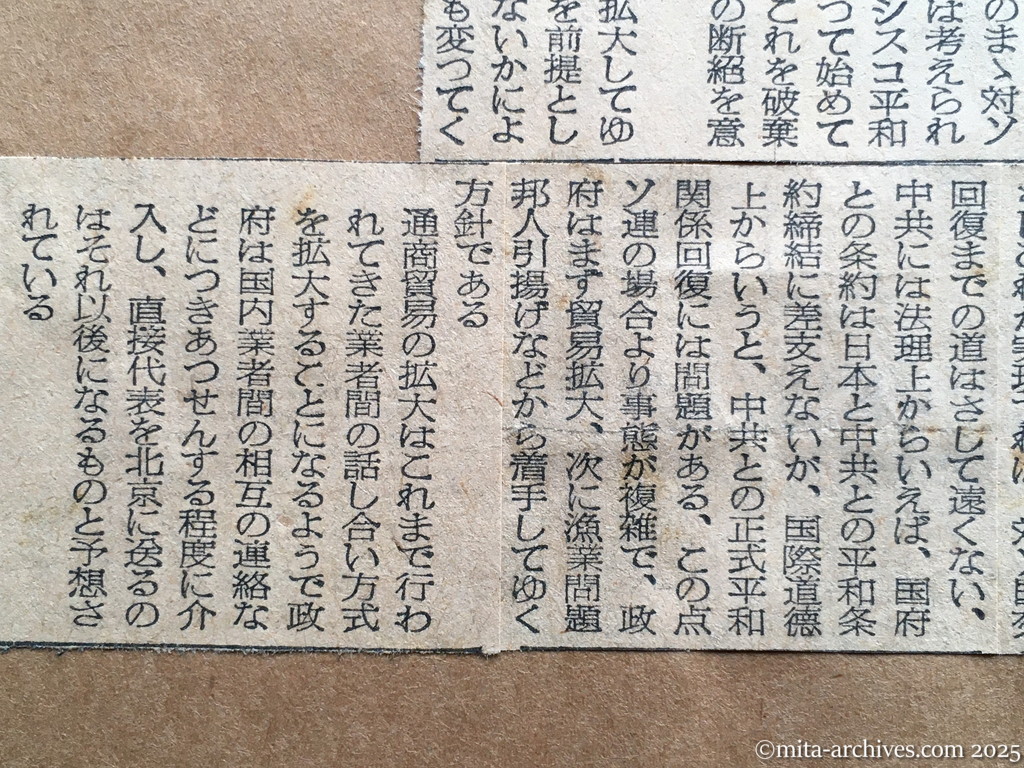 のまゝ対ソ
は考えられ
シスコ平和
つて始めて
これを破棄
の断絶を意
拡大してゆ
を前提とし
ないかによ
も変つてく
回復までの道はさして遠くない、
中共には法理上からいえば、国府
との条約は日本と中共との平和条
約締結に差支えないが、国際道徳
上からいうと、中共との正式平和
関係回復には問題がある、この点
ソ連の場合より事態が複雑で、政
府はまず貿易拡大、次に漁業問題
邦人引揚げなどから着手してゆく
方針である
通商貿易の拡大はこれまで行わ
れてきた業者間の話し合い方式
を拡大することになるようで政
府は国内業者間の相互の連絡な
どにつきあつせんする程度に介
入し、直接代表を北京に送るの
はそれ以後になるものと予想さ
れている
©mita-archives.com 2025